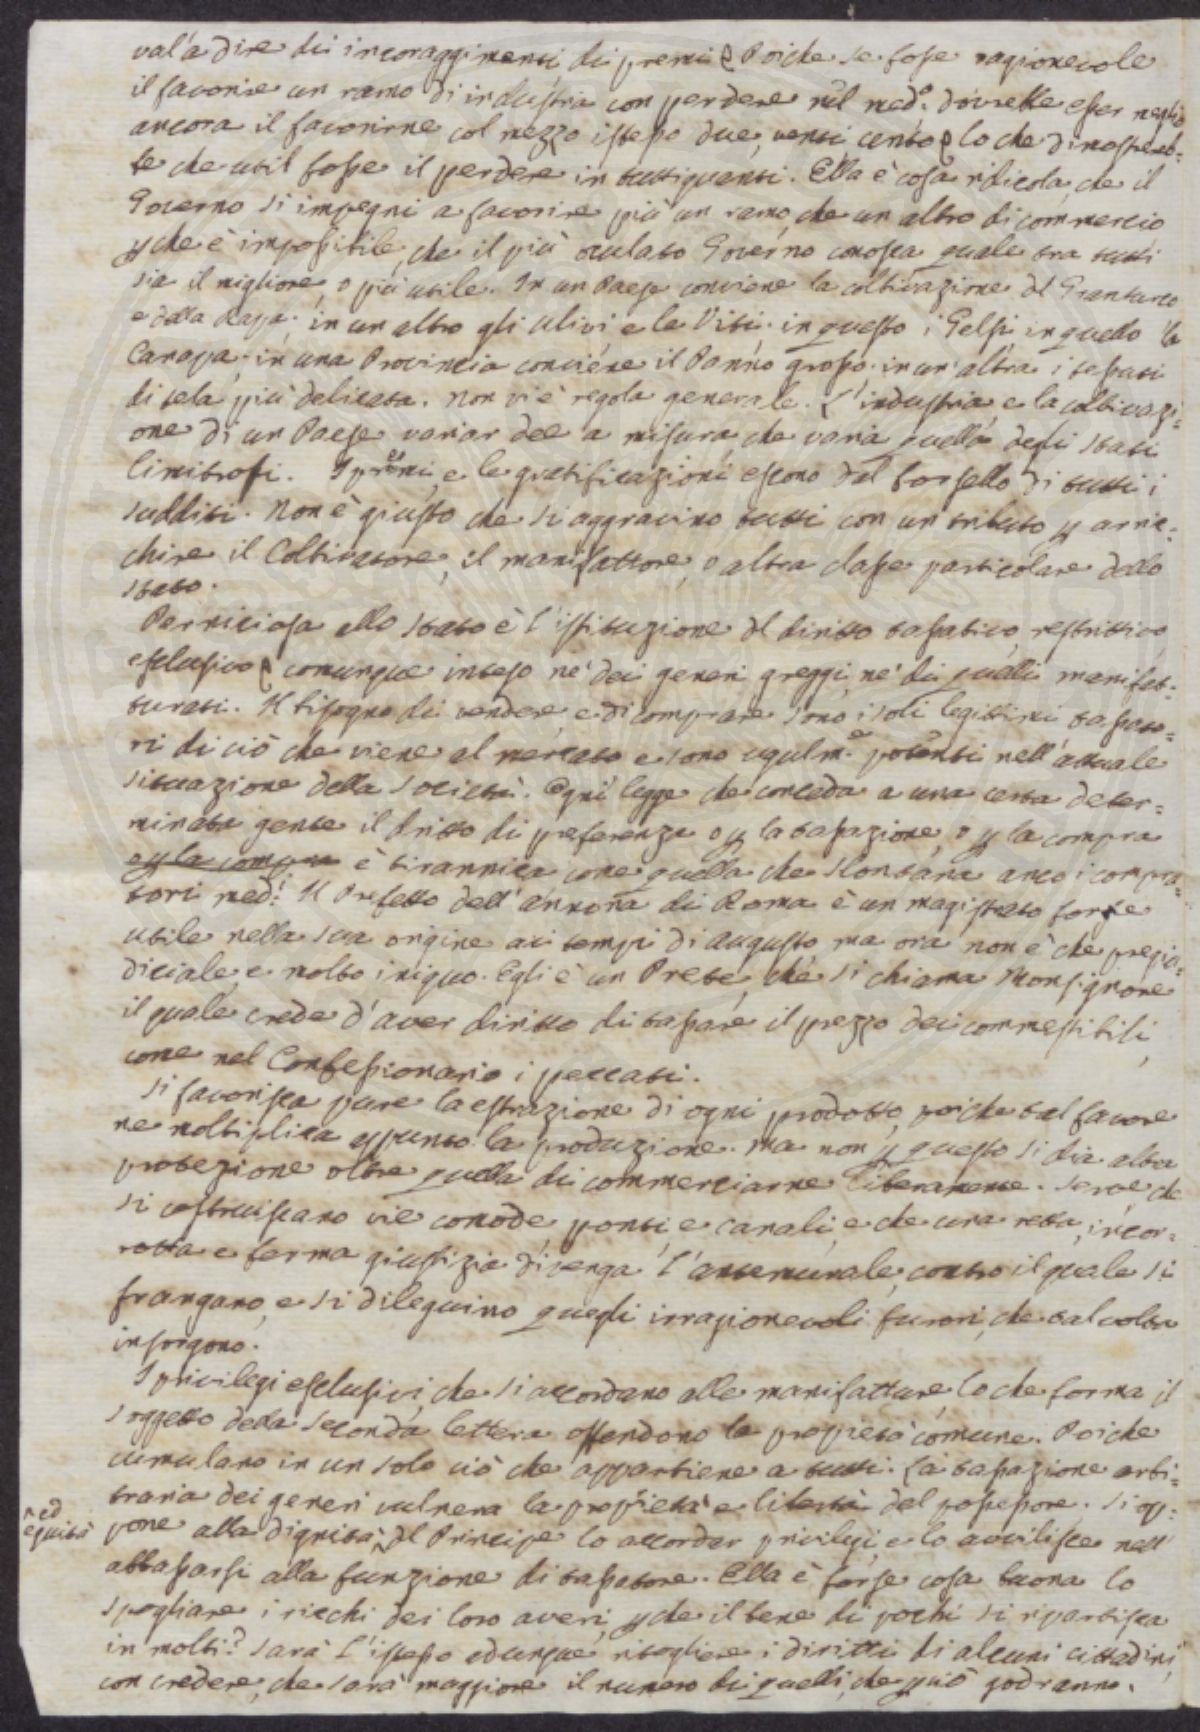 val'a dire di incoraggimenti di premi &c Poiche se fosse ragionevole
il favorire un ramo di industria con perdere nel med.º dovrebbe esser meglio
ancora il favorirne col mezzo istesso due, venti cento &c lo che dimostreb=
be che util fosse il perdere in tuttiquanti. Ella è cosa ridicola, che il
Governo si impegni a favorire più un ramo, che un altro di commercio
p che è impossibile, che il più oculato Governo conosca quale tra tutti
sia il migliore, o più utile. In un Paese conviene la coltivazione del Granturco
e della Rapa: in un altro gli Ulivi, e le Viti: in questo i Gelsi, in quello la
Canapa: in una Provincia conviene il Panno grosso: in un'altra i tessuti
di tela più delicata. Non vi è regola generale. L'industria e la coltivazi=
one di un Paese variar dee a misura, che varia quella degli stati
limitrofi. I premi, e le gratificazioni escono dal borsello di tutti i
sudditi. Non è giusto che si aggravino tutti con un tributo p arric=
chire il Coltivatore, il manifattore, o altra classe particolare dello
stato.
Perniciosa allo stato è l'istituzione del diritto tassativo, restrittivo
esclusivo &c comunque inteso nè dei generi greggi, nè di quelli manifat=
turati. Il bisogno di vendere, e di comprare sono i soli legittimi tassato=
ri di ciò che viene al mercato e sono ugualm.e potenti nell'attuale
situazione della società. Ogni legge che conceda a una certa deter=
minata gente il dritto di preferenza o p la tassazione, o p la compra
o p la compra è tirannica come quella che slontana anco i compra=
tori med.i Il Prefetto dell'annona di Roma è un magistrato forse
utile nella sua origine ai tempi di Augusto, ma ora non è che pregiu=
diciale, e molto iniquo. Egli è un Prete, che si chiama Monsignore
il quale crede d'aver diritto di tassare il prezzo dei commestibili,
come nel Confessionario i peccati.
Si favorisca pure la estrazione di ogni prodotto, poiche tal favore
ne moltiplica appunto la produzione. Ma non p questo si dia altra
protezione oltre quella di commerciarne liberamente. Serve che
si costruiscano vie comode, ponti e canali, e che una retta, incor=
rotta e ferma giustizia divenga l'antemurale, contro il quale si
frangano, e si dileguino quegli irragionevoli furori, che talvolta
insorgono.
I privilegi esclusivi, che si accordano alle manifatture, lo che forma il
soggetto della seconda lettera offendono la proprietà comune. Poiche
cumulano in un solo ciò che appartiene a tutti. La tassazione arbi=
traria dei generi vulnera la proprietà e libertà del possessore. Si op=
pone alla dignità del Principe lo accordar privilegi, e lo avvilisce nell'
ed
equità
abbassarsi alla funzione di tassatore. Ella è forse cosa buona lo
spogliare i ricchi dei loro averi, p che il bene di pochi si ripartisca
in molti? Sarà l'istesso adunque ritogliere i diritti di alcuni cittadini,
con credere, che sarà maggiore il numero di quelli, che p ciò godranno.